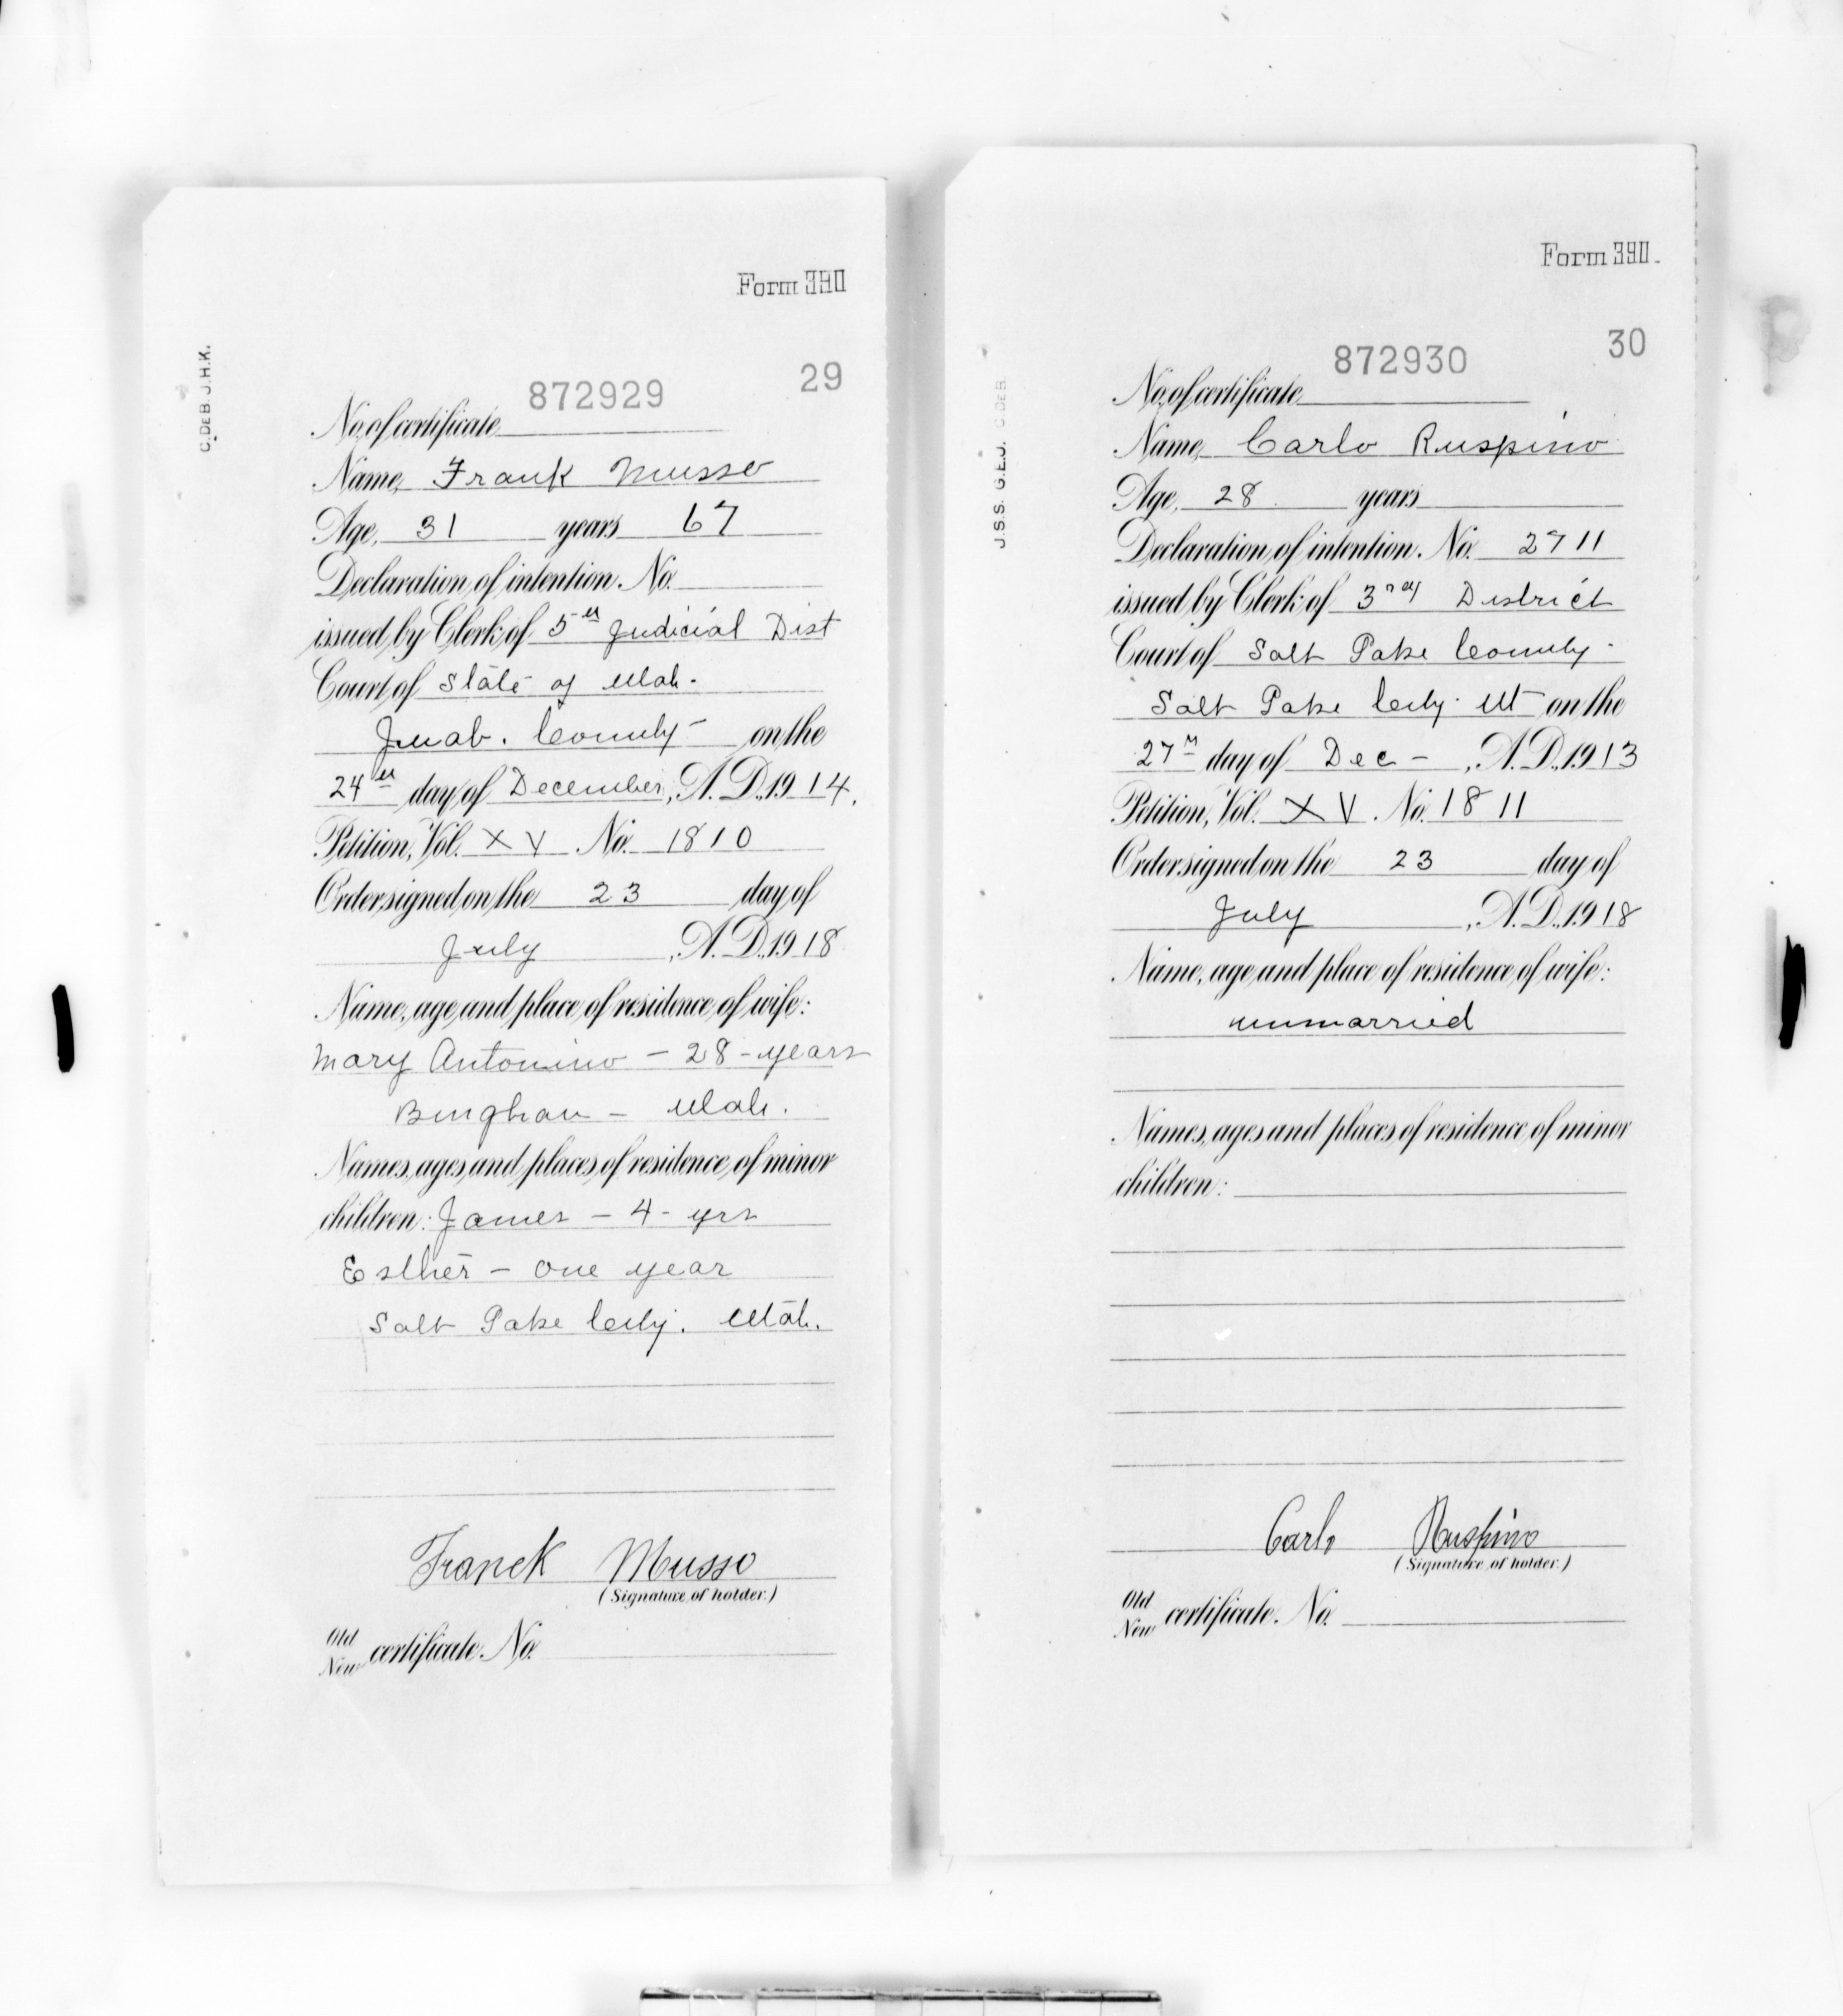 Form 390
C. DEB J.H.K.
29
872929
No. of certificate
Name, Frank Musso
Age, 31 years 67
Declaration of intention No.
issued by Clerk of 5th Judicial Dist
Court of State of Utah.
Juab. County on the
24th day of December, A.D. 1914.
Petition, Vol. XV No. 1810
Order signed on the 23 day of
July, A.D. 1918
Name, age and place of residence of wife:
Mary Antonino - 28 - years
Bingham - Utah.
Names, ages and places of residence of minor
children: James - 4 - yrs
Esther - one year
Salt Lake City. Utah.
Franck Musso
(Signature of holder.)
Old
New certificate No.
Form 390.
J.S.S. G.E.J. C. DEB.
30
872930
No. of certificate
Name, Carlo Ruspino
Age, 28 years
Declaration of intention No. 2711
issued by Clerk of 3rd District
Court of Salt Lake County -
Salt Lake City. Ut on the
27th day of Dec -, A.D. 1913
Petition, Vol. XV. No. 1811
Order signed on the 23 day of
July, A.D. 1918
Name, age and place of residence of wife:
unmarried
Names, ages and places of residence of minor
children:
Carlo Ruspino
(Signature of holder.)
Old
New certificate No.